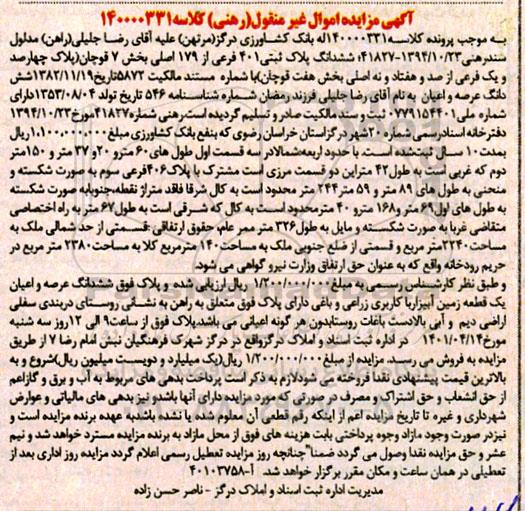 آگهی مزایده اموال غیر منقول(رهنی) کلاسه۱۴۰۰۰۰۳۳۱
به موجب پرونده کلاسه۱۴۰۰۰۰۳۳۱له بانک کشاورزی درگز(مرتهن) علیه آقای رضا جلیلی(راهن) مدلول
سندرهنی۱۳۹۴/۱۰/۲۳-۴۱۸۲۷؛ ششدانگ پلاک ثبتی۴۰۱ فرعی از ۱۷۹ اصلی بخش ۷ قوچان(پلاک چهارصد
و یک فرعی از صد و هفتاد و نه اصلی بخش هفت قوچان)با شماره مستند مالکیت ۵۸۷۲تاریخ۱۳۸۲/۱۱/۱۹شش
دانگ عرصه و اعیان به نام آقای رضا جلیلی فرزند رمضان شماره شناسنامه ۵۴۶ تاریخ تولد ۱۳۵۳/۰۸/۰۴دارای
شماره ملی۰۷۷۹۱۵۴۴۰۱ ثبت و سند مالکیت صادر و تسلیم گردیده است رهنی شماره۴۱۸۲۷مورخ۱۳۹۴/۱۰/۲۳
دفترخانه اسنادرسمی شماره ۲۰شهر درگزاستان خراسان رضوی که بنفع بانک کشاورزی مبلغ۱،۱۰۰،۰۰۰،۰۰۰ریال
بمدت ۱۰ سال ثبت شده است. با حدود اربعه:شمالادر سه قسمت اول طول های ۶۰ مترو ۲۰و ۳۷ متر و ۱۵۰متر
دوم که غربی است به طول ۴۲ متراین دو قسمت مرزی است مشترک با پلاک ۴۰۶فرعی سوم به صورت شکسته و
منحنی به طول های ۸۹ متر و ۵۹ متر ۲۴۴ متر محدود است به کال شرقا فاقد متراژ نقطه،جنوبابه صورت شکسته
به طول های اول۶۹ متر و۱۶۸ مترو ۴۰ مترمحدود است به کال که شرقی است به طول۶۷ متر به راه اختصاصی
متقاضی غربا به صورت شکسته و مایل به طول۳۲۶ متر ممر عام، حقوق ارتفاقی :قسمتی از حد شمالی ملک به
مساحت۲۲۴۰متر مربع و قسمتی از ضلع جنوبی ملک به مساحت۱۴۰ مترمربع کلا به مساحت۲۳۸۰ متر مربع در
حریم رودخانه واقع که به عنوان حق ارتفاق وزارت نیرو گواهی می شود.
و طبق نظر کارشناس رسمی به مبلغ ۱/۲۰۰/۰۰۰/۰۰۰ ریال ارزیابی شده و پلاک فوق ششدانگ عرصه و اعیان
یک قطعه زمین آبیزاربا کاربری زراعی و باغی دارای پلاک فوق متعلق به راهن به نشانی روستای دربندی سفلی
اراضی دیم و آبی بالادست باغات روستابدون هر گونه اعیانی می باشدپلاک فوق از ساعت۹ الی ۱۲روز سه شنبه
مورخ۱۴۰۱/۰۴/۱۴ در اداره ثبت اسناد و املاک درگزواقع در درگز شهرک فرهنگیان نبش امام رضا ۷ از طریق
مزایده به فروش می رسد. مزایده از مبلغ ۱/۲۰۰/۰۰۰/۰۰۰ ریال(یک میلیارد و دویست میلیون ریال)شروع و به
بالاترین قیمت پیشنهادی نقدا فروخته می شودلازم به ذکر است پرداخت بدهی های مربوط به آب و برق و گازاعم
از حق انشعاب و حق اشتراک و مصرف در صورتی که مورد مزایده دارای آنها باشدو نیز بدهی های مالیاتی و عوارض
شهرداری و غیره تا تاریخ مزایده اعم از اینکه رقم قطعی آن معلوم شده یا نشده باشدبه عهده برنده مزایده است و
نیزدر صورت وجود مازاد وجوه پرداختی بابت هزینه های فوق از محل مازاد به برنده مزایده مسترد خواهد شد و نیم
عشر و حق مزایده نقدا وصول می گردد ضمنا"چنانچه روز مزایده تعطیل رسمی اعلام گردد مزایده روز اداری بعد از
تعطیلی در همان ساعت و مکان مقرر برگزار خواهد شد. آ-۴۰۱۰۳۷۵۸
مدیریت اداره ثبت اسناد و املاک درگز - ناصر حسن زاده